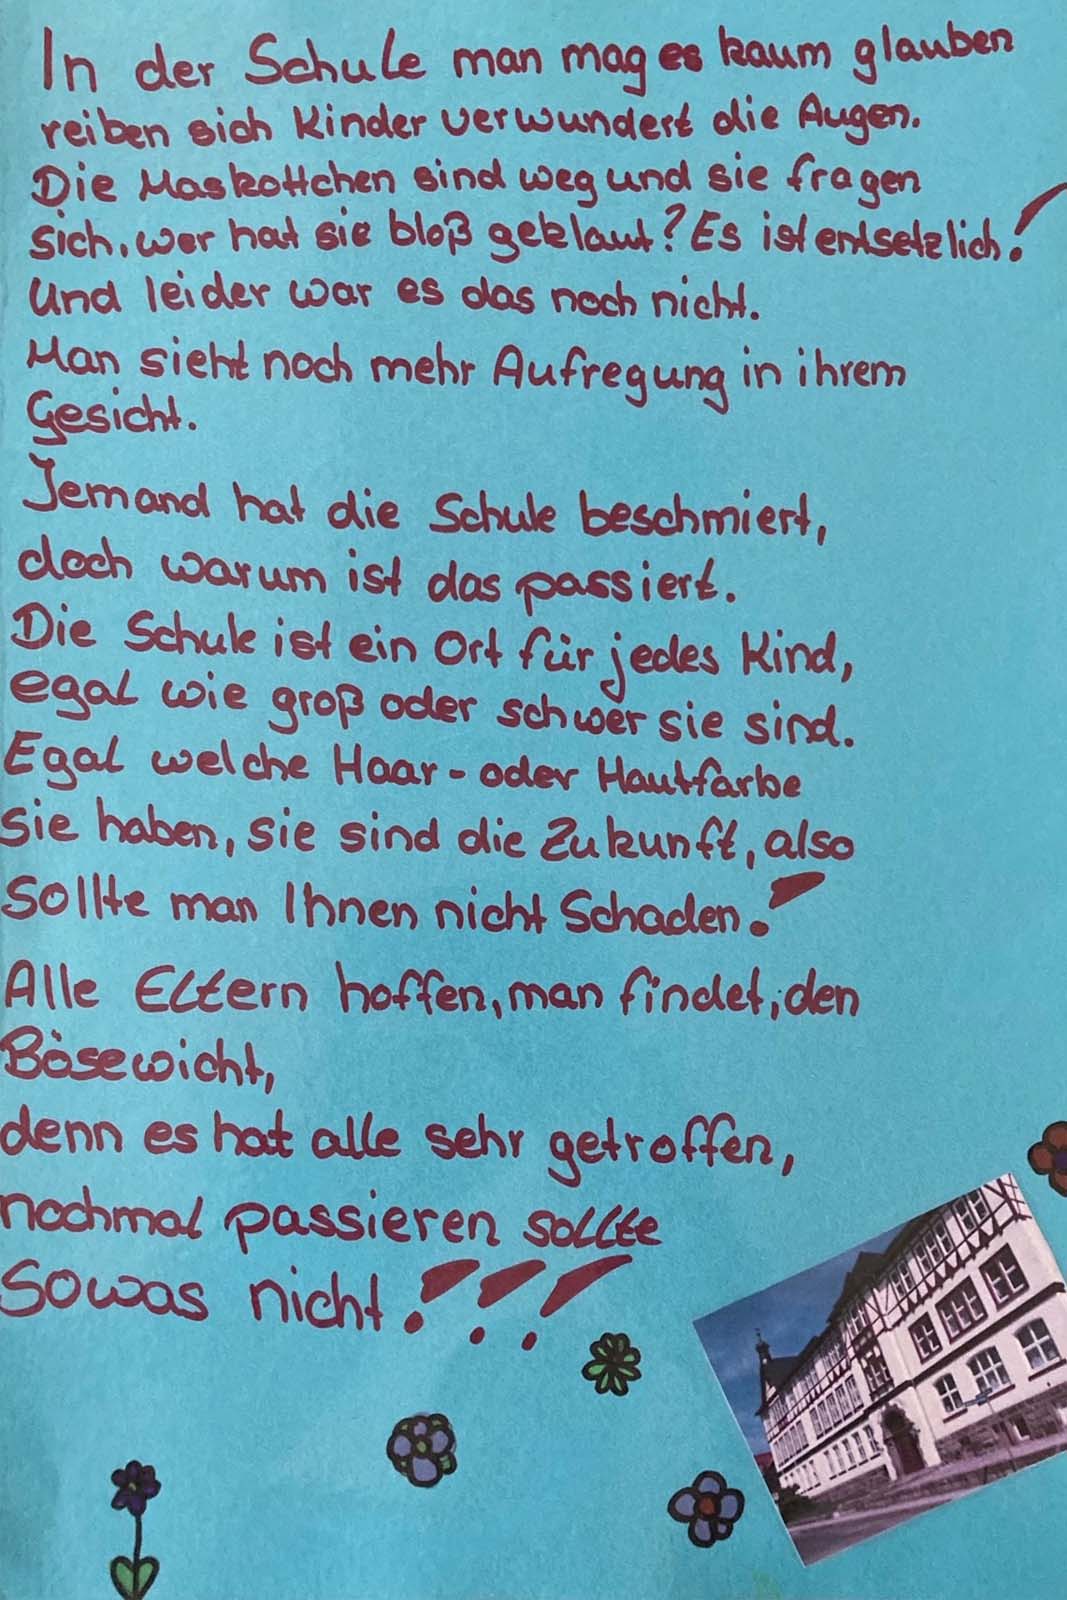 In der Schule man mag es kaum glauben
reiben sich Kinder verwundert die Augen.
Die Maskottchen sind weg und sie fragen
sich, wer hat sie bloß geklaut? Es ist entsetzlich!
Und leider war es das noch nicht.
Man sieht noch mehr Aufregung in ihrem
Gesicht.
Jemand hat die Schule beschmiert,
doch warum ist das passiert.
Die Schule ist ein Ort für jedes Kind,
egal wie groß oder schwer sie sind.
Egal welche Haar- oder Hautfarbe
sie haben, sie sind die Zukunft, also
sollte man Ihnen nicht Schaden!
Alle Eltern hoffen, man findet, den
Bösewicht,
denn es hat alle sehr getroffen,
nochmal passieren sollte
sowas nicht!!!